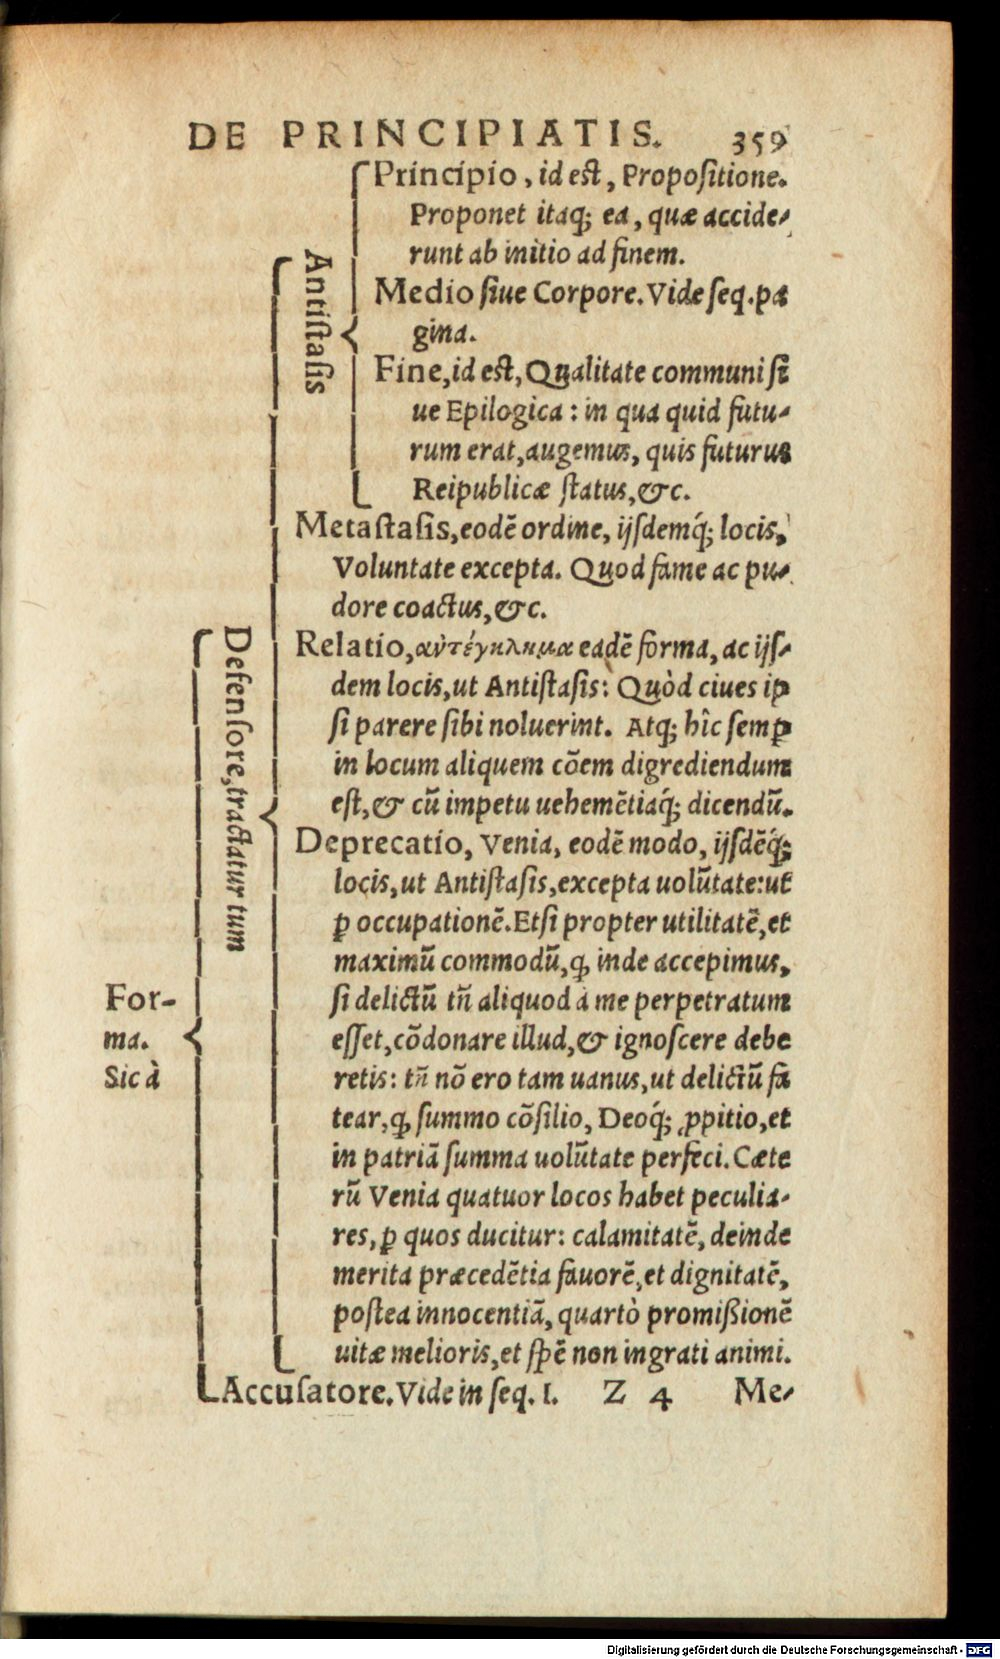 DE PRINCIPIATIS. 359
Principio, id est, Propositione.
Proponet itaq; ea, quæ accide-
runt ab initio ad finem.
Antistasis
Medio siue Corpore. Vide seq. pa
gina.
Fine, id est, Qualitate communi si
ue Epilogica: in qua quid futu-
rum erat, augemus, quis futurus
Reipublicæ status, &c.
Metastasis, eodē ordine, ijsdemq́; locis,
Voluntate excepta. Quod fame ac pu-
dore coactus, &c.
Defensore, tractatur tum
Relatio, αὐτέγκλημα eadē forma, ac ijs-
dem locis, ut Antistasis: Quòd ciues ip
si parere sibi noluerint. Atq; hîc semꝑ
in locum aliquem cōem digrediendum
est, & cū impetu uehemētiaq́; dicendū.
Deprecatio, Venia, eodē modo, ijsdēq́;
locis, ut Antistasis, excepta uolūtate: ut
ꝑ occupationē. Etsi propter utilitatē, et
maximū commodū, ꝙ inde accepimus,
si delictū tñ aliquod à me perpetratum
esset, cōdonare illud, & ignoscere debe
retis: tñ nō ero tam uanus, ut delictū fa
tear, ꝙ summo cōsilio, Deoq́; ꝓpitio, et
in patriā summa uolūtate perfeci. Cæte
rū Venia quatuor locos habet peculia-
res, ꝑ quos ducitur: calamitatē, deinde
merita præcedētia fauorē, et dignitatē,
postea innocentiā, quartò promißionē
uitæ melioris, et spē non ingrati animi.
For-
ma.
Sic à
Accusatore. Vide in seq. I. Z 4 Me-
Digitalisierung gefördert durch die Deutsche Forschungsgemeinschaft - DFG